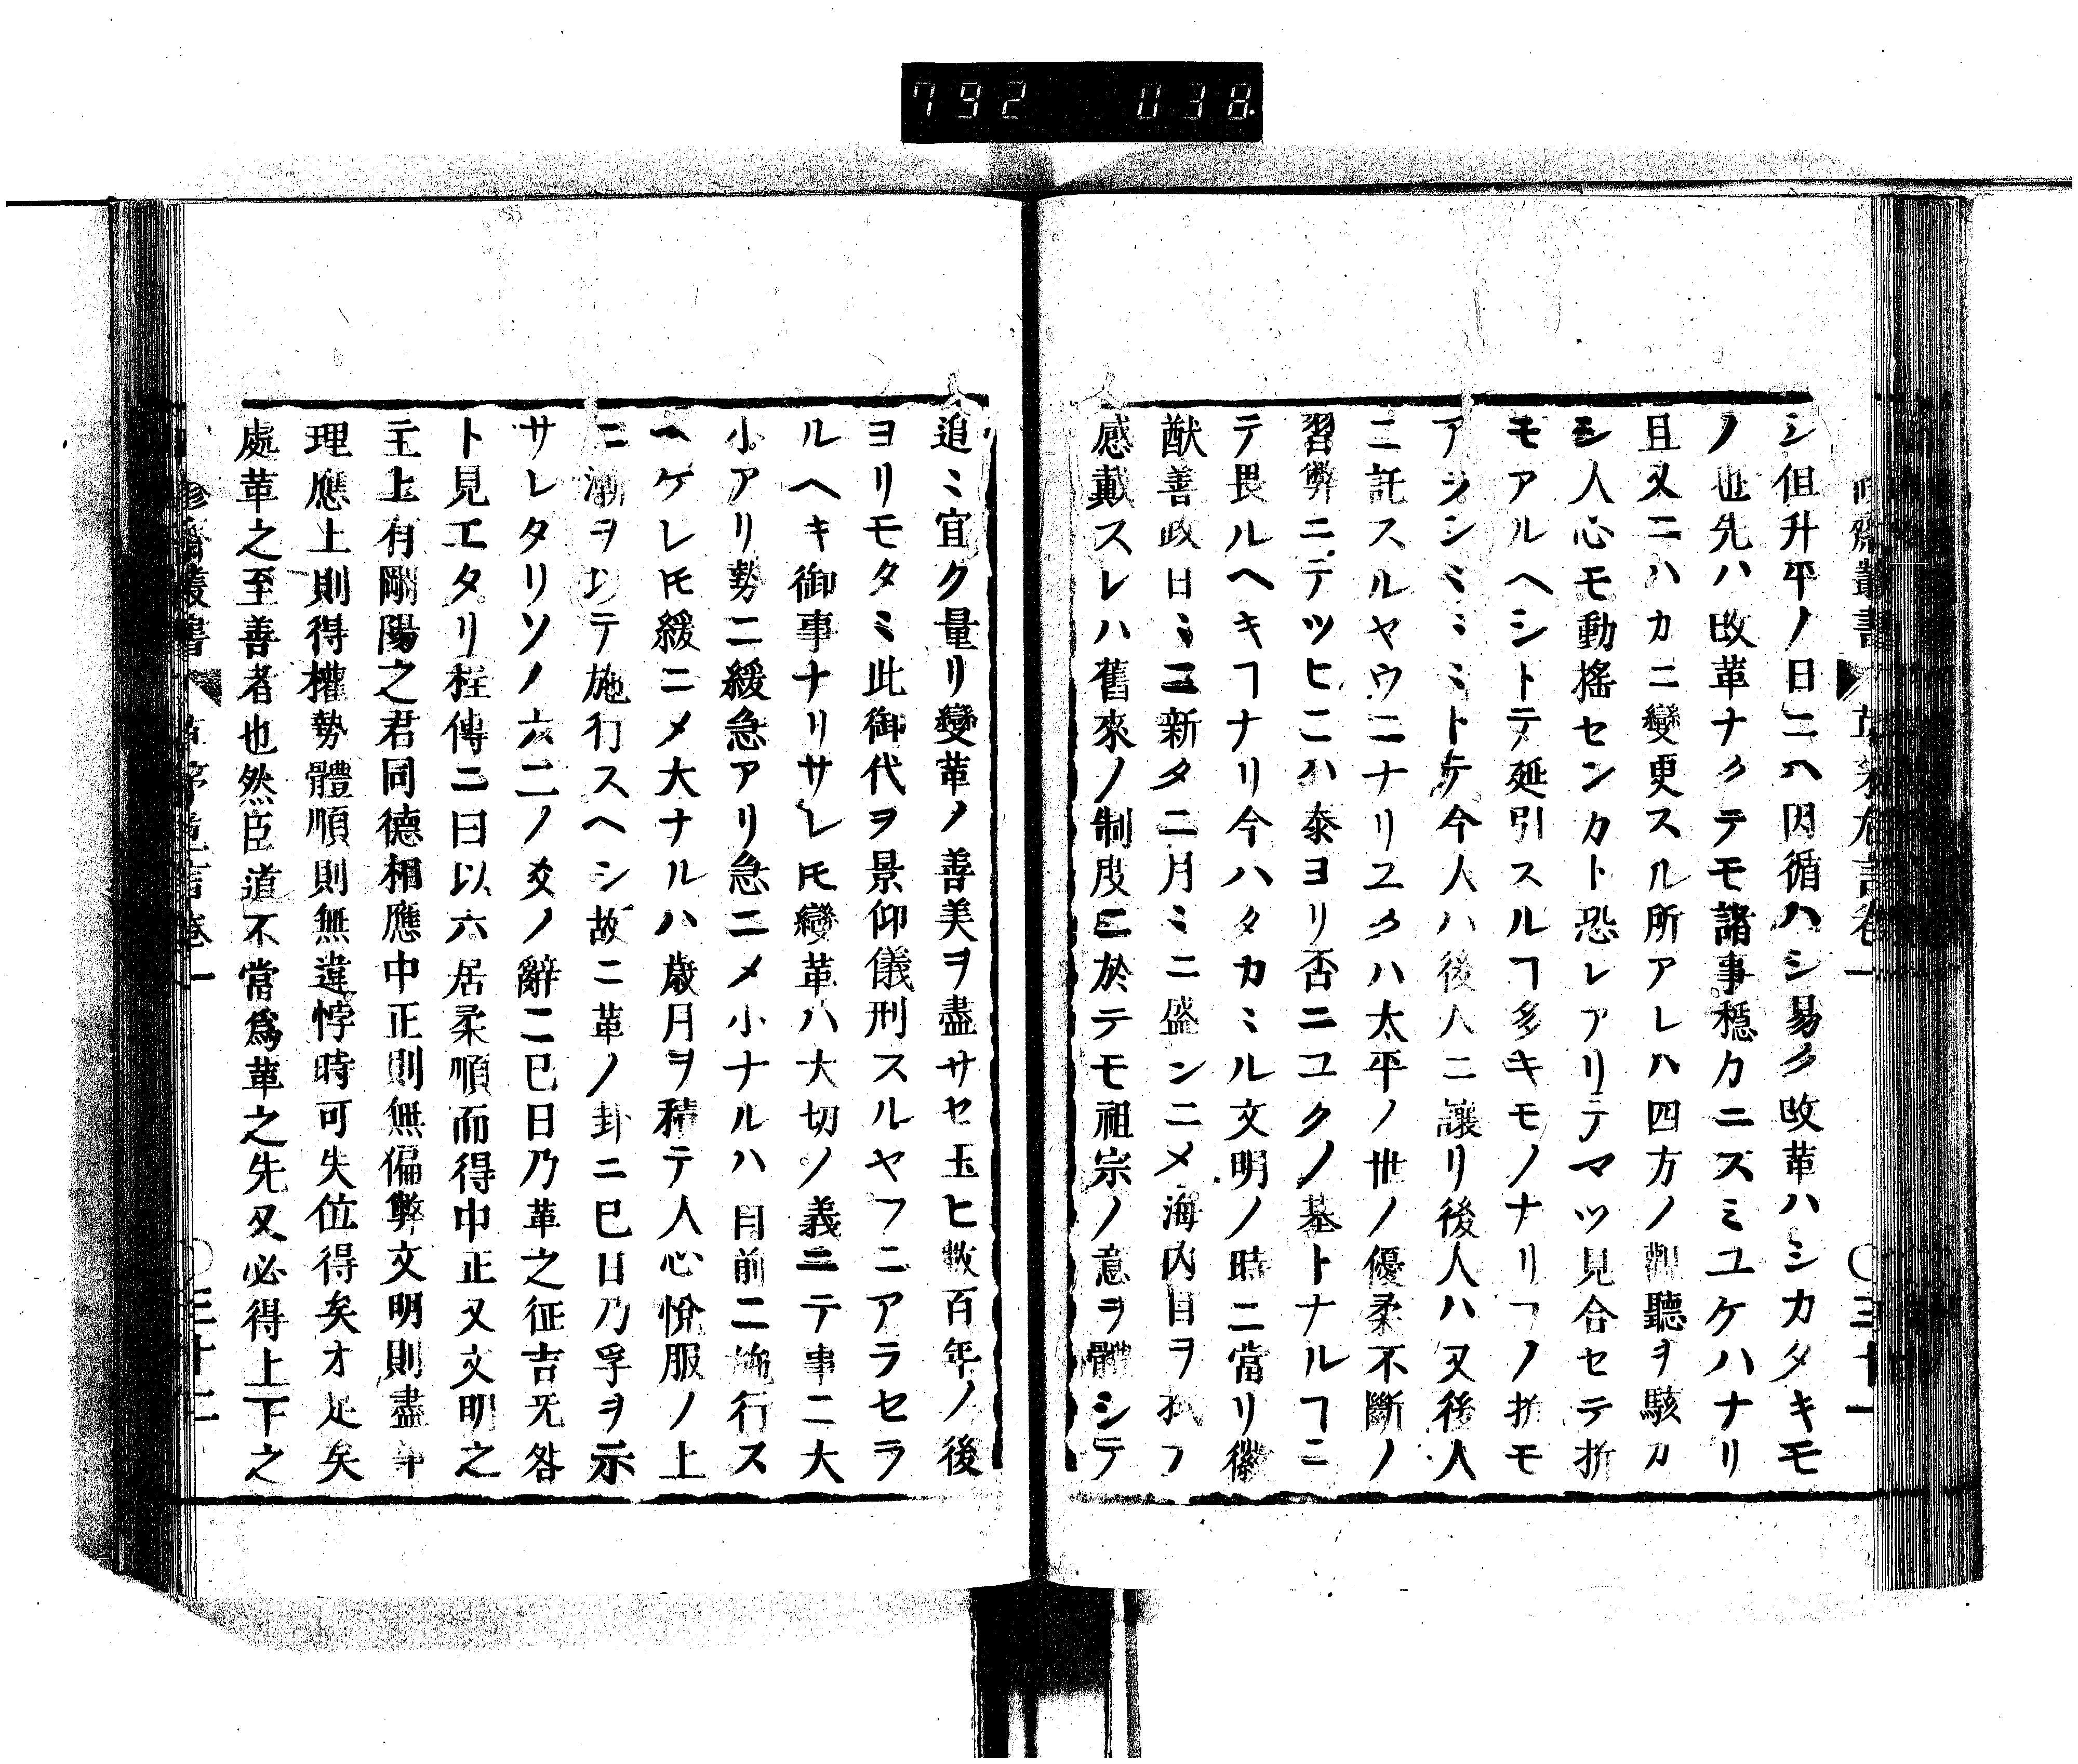 792 038
シ但升平ノ日ニハ因循ハシ易ク改革ハシカタキモ
ノ也先ハ改革ナクテモ諸事穩カニスミユケハナリ
且又ニハカニ變更スル所アレハ四方ノ觀聽ヲ駭カ
シ人心モ動搖センカト恐レアリテマツ見合セテ折
モアルヘシトテ延引スルヿ多キモノナリフノ折モ
アランミミトテ今人ハ後人ニ讓リ後人ハ又後人
ニ託スルヤウニナリユクハ太平ノ世ノ優柔不斷ノ
習弊ニテツヒニハ泰ヨリ否ニユクノ基トナルヿニ
テ畏ルヘキヿナリ今ハタカミル文明ノ時ニ當リ徽
猷善政日ミニ新タニ月ミニ盛ンニメ海内目ヲ拭フ
感戴スレハ舊來ノ制度ニ於テモ祖宗ノ意ヲ體シテ
追ミ宜ク量リ變革ノ善美ヲ盡サセ玉ヒ數百年ノ後
ヨリモタミ此御代ヲ景仰儀刑スルヤフニアラセラ
ルヘキ御事ナリサレ𪜈變革ハ大切ノ義ニテ事ニ大
小アリ勢ニ緩急アリ急ニメ小ナルハ目前ニ施行ス
ヘケレ𪜈緩ニメ大ナルハ歳月ヲ積テ人心悅服ノ上
ニ漸ヲ以テ施行スヘシ故ニ革ノ卦ニ巳日乃孚ヲ示
サレタリソノ六二ノ爻ノ辭ニ巳日乃革之征吉无咎
ト見エタリ程傳ニ曰以六居柔順而得中正又文明之
主上有剛陽之君同德相應中正則無偏弊文明則盡事
理應上則得權勢體順則無違悖時可失位得矣才足矣
處革之至善者也然臣道不當爲革之先又必得上下之